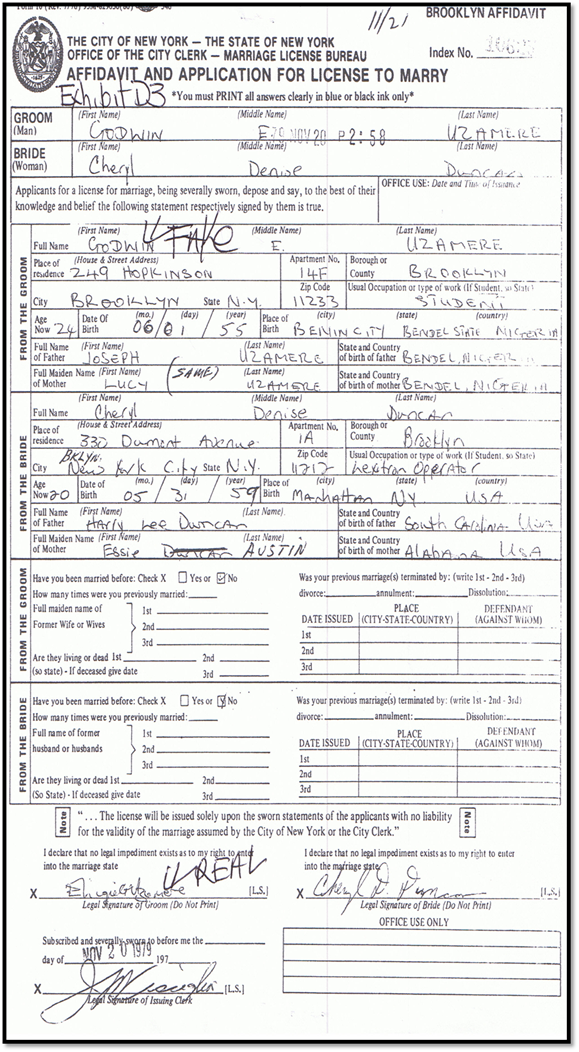 BROOKLYN AFFIDAVIT
11/21
THE CITY OF NEW YORK — THE STATE OF NEW YORK
OFFICE OF THE CITY CLERK – MARRIAGE LICENSE BUREAU
Index No.
AFFIDAVIT AND APPLICATION FOR LICENSE TO MARRY
Exhibit D3 *You must PRINT all answers clearly in blue or black ink only*
GROOM (Man) (First Name) (Middle Name) (Last Name)
GODWIN E. UZAMERE
79 NOV 20 P 2:58
BRIDE (Woman) (First Name) (Middle Name) (Last Name)
Cheryl Denise Duncan
Applicants for a license for marriage, being severally sworn, depose and say, to the best of their
knowledge and belief the following statement respectively signed by them is true.
OFFICE USE: Date and Time of Issuance
FROM THE GROOM
(First Name) (Middle Name) (Last Name)
Full Name GODWIN E. UZAMERE
FAKE
Place of residence (House & Street Address) 249 HOPKINSON Apartment No. 14F Borough or County BROOKLYN
City BROOKLYN State N.Y. Zip Code 11233 Usual Occupation or type of work (If Student, so State) STUDENT
Age Now 24 Date Of Birth (mo.) 06 / (day) 01 / (year) 55 Place of Birth (city) BENIN CITY (state) BENDEL STATE (country) NIGERIA
Full Name of Father (First Name) JOSEPH (Last Name) UZAMERE State and Country of birth of father BENDEL, NIGERIA
Full Maiden Name of Mother (First Name) LUCY (SAME) (Last Name) UZAMERE State and Country of birth of mother BENDEL, NIGERIA
FROM THE BRIDE
(First Name) (Middle Name) (Last Name)
Full Name Cheryl Denise Duncan
Place of residence (House & Street Address) 330 Dumont Avenue Apartment No. 1A Borough or County Brooklyn
BKLYN.
City New York City State N.Y. Zip Code 11212 Usual Occupation or type of work (If Student, so State) Lextron Operator
Age Now 20 Date of Birth (mo.) 05 / (day) 31 / (year) 59 Place of Birth (city) Manhattan (state) NY (country) USA
Full Name of Father (First Name) Harry Lee (Last Name) Duncan State and Country of birth of father South Carolina USA
Full Maiden Name of Mother (First Name) Essie (Last Name) Duncan AUSTIN State and Country of birth of mother Alabama USA
FROM THE GROOM
Have you been married before: Check X Yes or No
How many times were you previously married:
Full maiden name of Former Wife or Wives 1st
2nd
3rd
Are they living or dead 1st 2nd
(so state) - If deceased give date 3rd
Was your previous marriage(s) terminated by: (write 1st - 2nd - 3rd)
divorce: annulment: Dissolution:
DATE ISSUED PLACE (CITY-STATE-COUNTRY) DEFENDANT (AGAINST WHOM)
1st
2nd
3rd
FROM THE BRIDE
Have you been married before: Check X Yes or No
How many times were you previously married:
Full name of former husband or husbands 1st
2nd
3rd
Are they living or dead 1st 2nd
(So State) - If deceased give date 3rd
Was your previous marriage(s) terminated by: (write 1st - 2nd - 3rd)
divorce: annulment: Dissolution:
DATE ISSUED PLACE (CITY-STATE-COUNTRY) DEFENDANT (AGAINST WHOM)
1st
2nd
3rd
Note
“... The license will be issued solely upon the sworn statements of the applicants with no liability
for the validity of the marriage assumed by the City of New York or the City Clerk.”
Note
I declare that no legal impediment exists as to my right to enter
into the marriage state
REAL
X [L.S.]
Legal Signature of Groom (Do Not Print)
I declare that no legal impediment exists as to my right to enter
into the marriage state
X Cheryl D. Duncan [L.S.]
Legal Signature of Bride (Do Not Print)
OFFICE USE ONLY
Subscribed and severally-sworn to before me the
day of NOV 20 1979 197
X [L.S.]
Legal Signature of Issuing Clerk